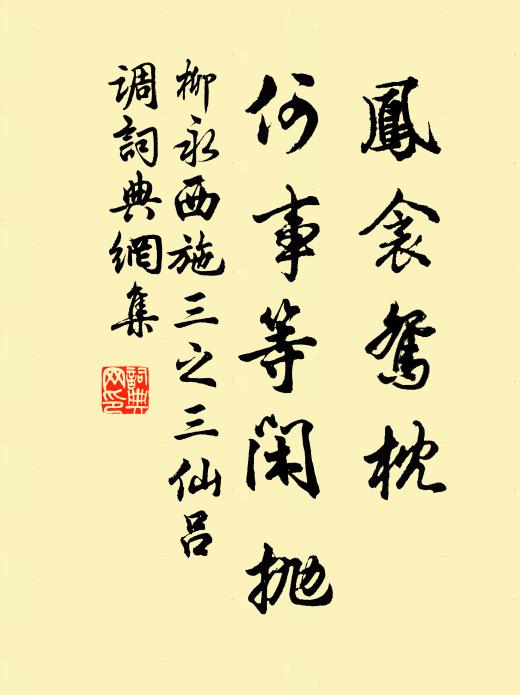 鳳衾鴛枕
何事等閑抛
柳永西施三之三仙呂
調詞典網集
詞典網印